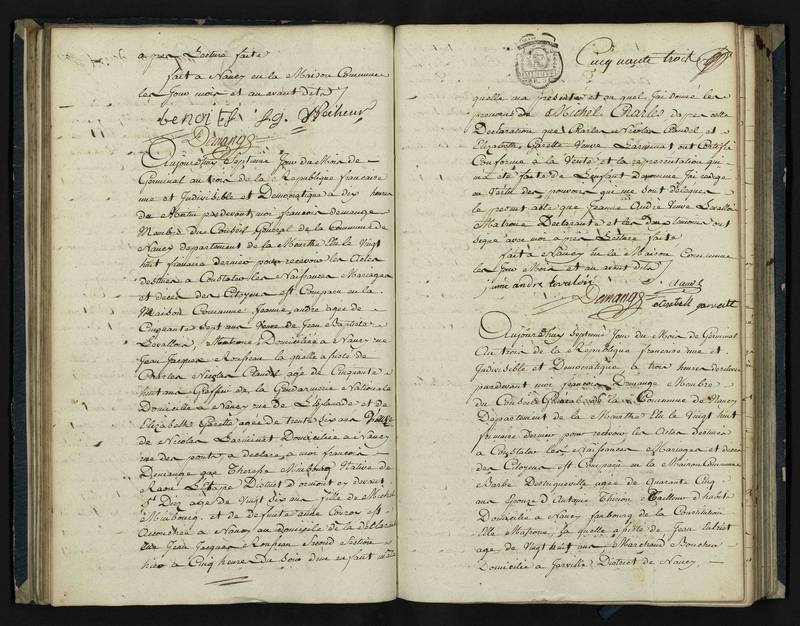 apres Lecture faite
fait a Nancy en la Maison Commune
les Jour mois et an avant dits
benoit
Demange
Aujourdhuy Septieme Jour du Mois de
Germinal an trois de la Republique francaise
une et Indivisible et Democratique a dix heures
du Matin pardevant moi francois demange
Membre Du Conseil General de la Commune de
Nancy departement de la Meurthe Elu le vingt
huit frimaire dernier pour recevoir les Actes
destines a Constater les Naissances Mariages
et deces des Citoyens est Comparu en la
Maison Commune Jeanne andre agee de
Cinquante sept ans Veuve de Jean Baptiste
Levallois, Matrone, Domiciliée a Nancy rue
Jean Jacques Rousseau la quelle assiste de
Charles Nicolas Claudel age de Cinquante
huit ans Greffier de la Gendarmerie Nationale
Domicilie a Nancy rue de L'Esplanade et de
Elizabeth Garette agee de trente six ans Veuve
de Nicolas Larminat Domiciliée a Nancy
rue des ponts a declare a moi francois
Demange que Therese Minbourg Native de
Raon L'Etape District d'ormont cy devant
St Diez agée de Vingt six ans fille de Michel
Minbourg et de defunte anne est
accouchée a Nancy au domicile de la déclarante
rue Jean Jacques Rousseau Second Section
hier a Cinq heures Du Soir d'un enfant male
Cinquante trois
quelle ma présenté et au quel J'ai donné les
prenoms de Michel Charles dapres cette
Declaration que Charles Nicolas Claudel et
Elizabeth Garette Veuve Larminat ont Certifié
Conforme a la Verité et la representation qui
ma été faite de Lenfant denommé J'ai redigé
en Vertu des pouvoirs qui me sont délegués
le present acte que Jeanne André Veuve Levallois
Matrone Declarante et les deux temoins ont
signé avec moi apres Lecture faite
fait a Nancy en la Maison Commune
les Jour Mois et an avant dits
jeanne andre
Demange
elisabeth
Aujourdhuy Septieme Jour du Mois de Germinal
an trois de la Republique francaise une et
Indivisible et Democratique a trois heures de relevée
pardevant moi francois Demange Membre
du Conseil General de la Commune de Nancy
Departement de la Meurthe Elu le Vingt huit
frimaire dernier pour recevoir les Actes destinés
a Constater les Naissances Mariages et deces
des Citoyens est Comparu en la Maison Commune
Barbe agée de Quarante Cinq
ans Epouse d'Antoine Tailleur d'habits
Domiciliée a Nancy faubourg de la Constitution
Elle Matrone, la quelle assistée de Jean
age de Vingt huit ans Marchand Boucher
Domicilié a Jarville District de Nancy,